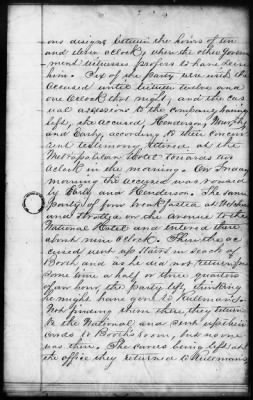 ous designs between the hours of ten
and eleven o'clock, when the other Govern-
ment witnesses profess to have seen
him. Six of the party were with the
accused until between twelve and
one o'clock that night, and the cas
ual accessions to the company having
left, the accused, Henderson, Murphy
and Early, according to their concur-
rent testimony, retired at the
Metropolitan Hotel towards two
o'clock in the morning. On Friday
morning the accused was roused
by Early and Henderson. The same
party of four breakfasted at Welcker's
and strolled on the Avenue to the
National Hotel and entered there
about nine o'clock. Then the ac
cused went up stairs in search of
Booth and as he did not return for
some time a half or three quarters
of an hour, the party left, thinking
he might have gone to Rullman's.
Not finding him there, they return
to the National and sent up their
cards to Booth's room, but no one
was there. The cards being left at
the office they returned to Rullman's